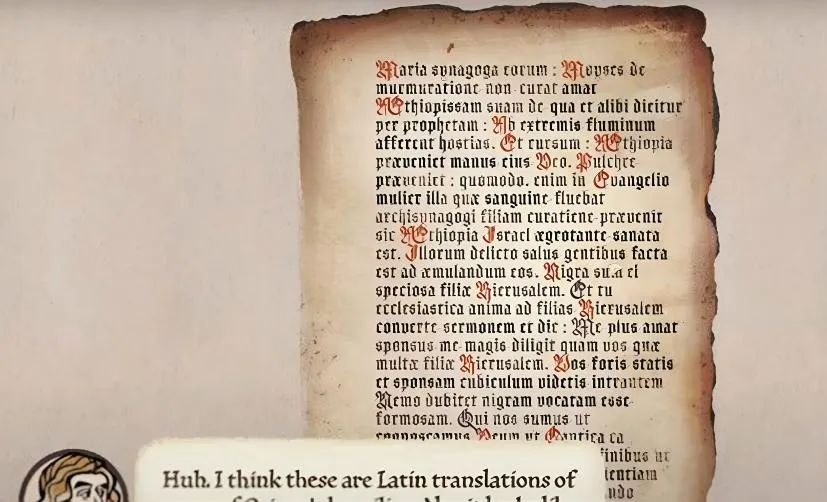 Maria synagoga eorum : Moyses de
murmuratione non curat amat
Æthiopissam suam de qua et alibi dicitur
per prophetam : Ab extremis fluminum
afferent hostias. Et rursum : Æthiopia
præveniet manus eius Deo. Pulchre
præveniet : quomodo. enim in Evangelio
mulier illa quæ sanguine fluebat
archisynagogi filiam curatione prævenit
sic Æthiopia Israel ægrotante sanata
est. Illorum delicto salus gentibus facta
est ad æmulandum eos. Nigra sum et
speciosa filiæ Hierusalem. Et tu
ecclesiastica anima ad filias Hierusalem
converte sermonem et dic : Me plus amat
sponsus me magis diligit quam vos quæ
multæ filiæ Hierusalem. Vos foris statis
et sponsam cubiculum videtis intrantem
Nemo dubitet nigram vocatam esse
formosam. Qui nos sumus ut
cognoscamus Deum ut Cantica ca
finibus ut
Huh. I think these are Latin translations of